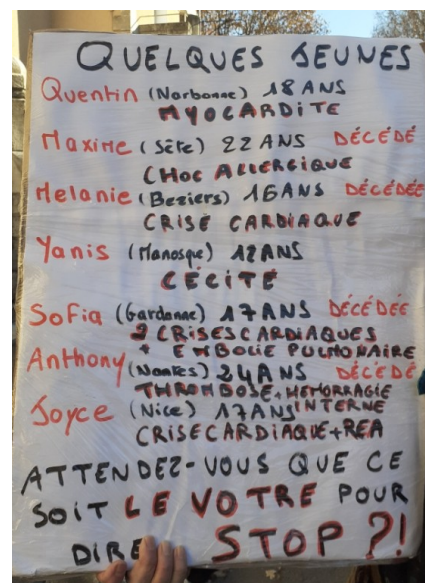 QUELQUES JEUNES
Quentin (Narbonne) 18 ANS
MYOCARDITE
Maxime (Sète) 22 ANS DÉCÉDÉ
CHOC ALLERGIQUE
Melanie (Beziers) 16 ANS DÉCÉDÉE
CRISE CARDIAQUE
Yanis (Manosque) 12 ANS
CÉCITÉ
SOFIA (Gardanne) 17 ANS DÉCÉDÉE
2 CRISES CARDIAQUES
+ EMBOLIE PULMONAIRE
Anthony (Nantes) 24 ANS DÉCÉDÉ
THROMBOSE + HEMORRAGIE
INTERNE
Joyce (Nice) 17 ANS
CRISE CARDIAQUE + REA
ATTENDEZ-VOUS QUE CE
SOIT LE VOTRE POUR
DIRE STOP ?!